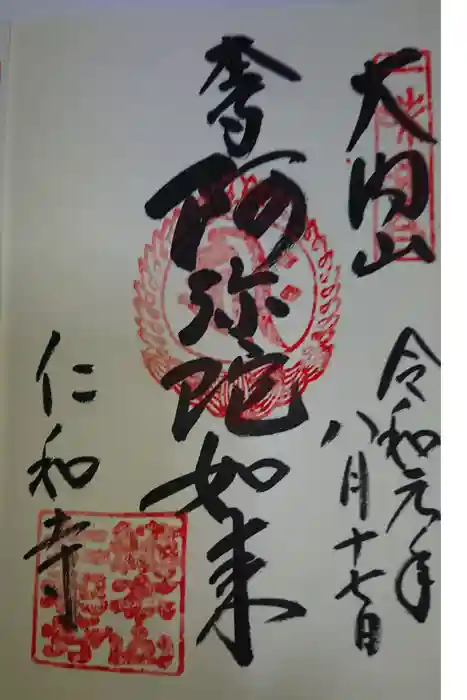 大内山
令和元年
八月十七日
奉
阿弥陀如来
仁和寺